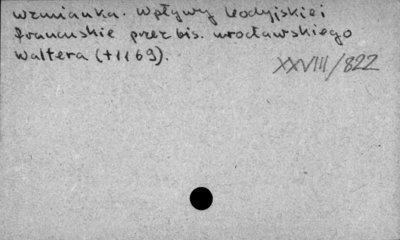 wzmianka. Wpływy leodyjskie i
francuskie przez bis. wrocławskiego
Waltera (+1169).
XXVIII/822